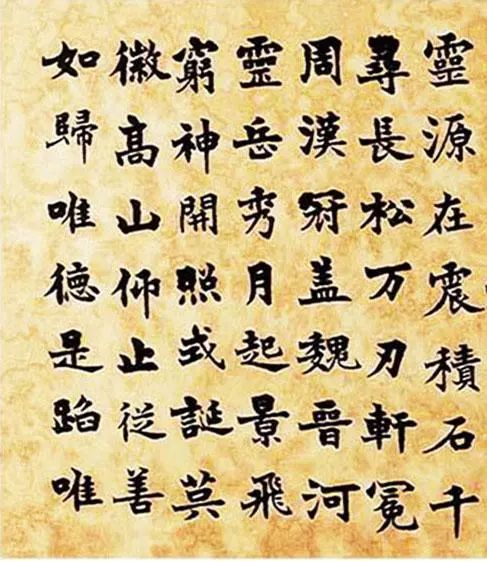 靈源在震積石千
尋長松万刃軒冕
周漢冠盖魏晉河
靈岳秀月起景飛
窮神開照式誕英
徽高山仰止從善
如歸唯德是蹈唯